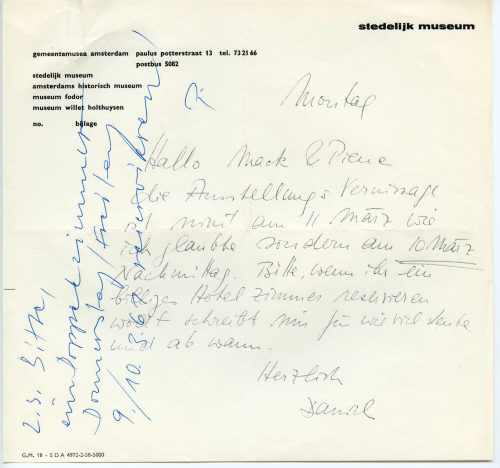 stedelijk museum
gemeentemusea amsterdam paulus potterstraat 13 tel. 73 21 66
postbus 5082
stedelijk museum
amsterdams historisch museum
museum fodor
museum willet holthuysen
no. bijlage
Montag
Hallo Mack & Piene
die Ausstellungs Vernissage
ist nicht am 11 März wie
ich glaubte sondern am 10 März
Nachmittag. Bitte, wenn ihr ein
billiges Hotel zimmer reservieren
wollt schreibt mir für wie viel Leute
und ab wann.
Herzlich
Daniel
Bitte,
ein Doppelzimmer
Donnerstag/Freitag
9./10.3.62 reservieren
G.M. 18 - S D A 4972-2-58-5000